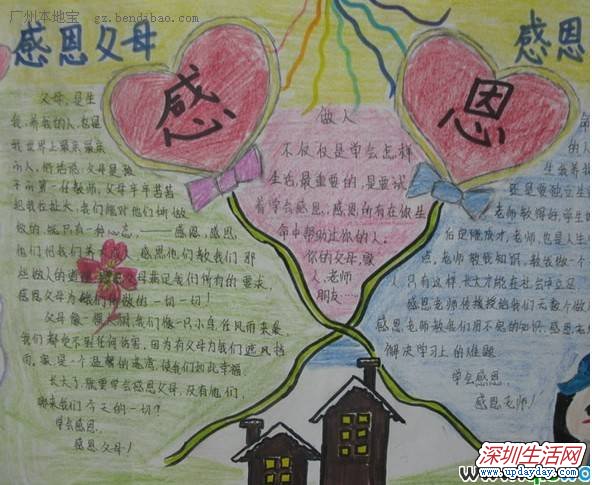 广州本地宝 gz.bendibao.com
感恩父母
感
恩
感恩
父母,是生
我,养我的人,也是
我世界上最亲最亲
的人,俗话说:父母是孩
子的第一任教师,父母辛辛苦苦
把我们养大,我们能对他们所做
做的,就只有一种心态,——感恩,感恩
他们把我们 感恩他们教我们那
些做人的道理 母满足我们所有的要求,
感恩父母为我们所做的一切一切!
父母像一棵大树,我们像一只小鸟,任风雨来袭,
我们都受不到任何伤害,因为有父母为我们遮风挡
雨,家,是一个温馨的港湾,使我们如此幸福。
长大了,就要学会感恩父母,没有他们,
哪来我们今天的一切?
学会感恩,
感恩父母!
做人
不仅仅是学会怎样
生活,最重要的,是要试
着学会感恩,感恩所有在你生
命中帮助过你的人,
你的父母,家
人,老师
朋友……
老师教得好,学生
老师,也是人生
点,老师教我知识,教我做一个
人,只有这样,长大才能在社会中立足
感恩老师传授授给我们无数个做
感恩老师教我们用不完的知识,感恩老
解决学习上的难题
学会感恩,
感恩老师!
深圳生活网
www.updayday.com